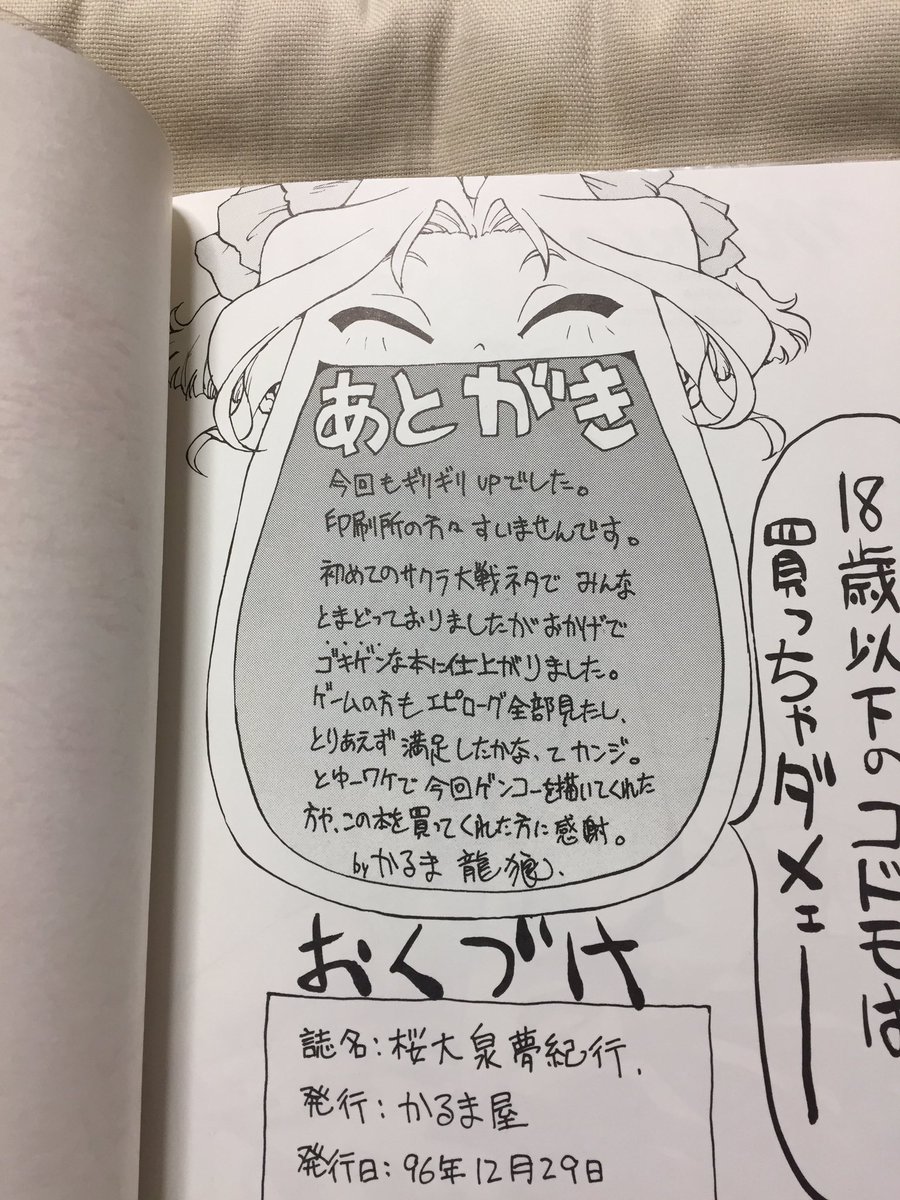 あとがき
今回もギリギリupでした。
印刷所の方々すいませんです。
初めてのサクラ大戦ネタでみんな
とまどっておりましたがおかげで
ゴキゲンな本に仕上がりました。
ゲームの方もエピローグ全部見たし、
とりあえず満足したかな、てカンジ。
とゆーワケで今回ゲンコーを描いてくれた
方や、この本を買ってくれた方に感謝。
byかるま龍狼
18歳以下のコドモは
買っちゃダメェー
おくづけ
誌名:桜大泉夢紀行.
発行:かるま屋
発行日:96年12月29日